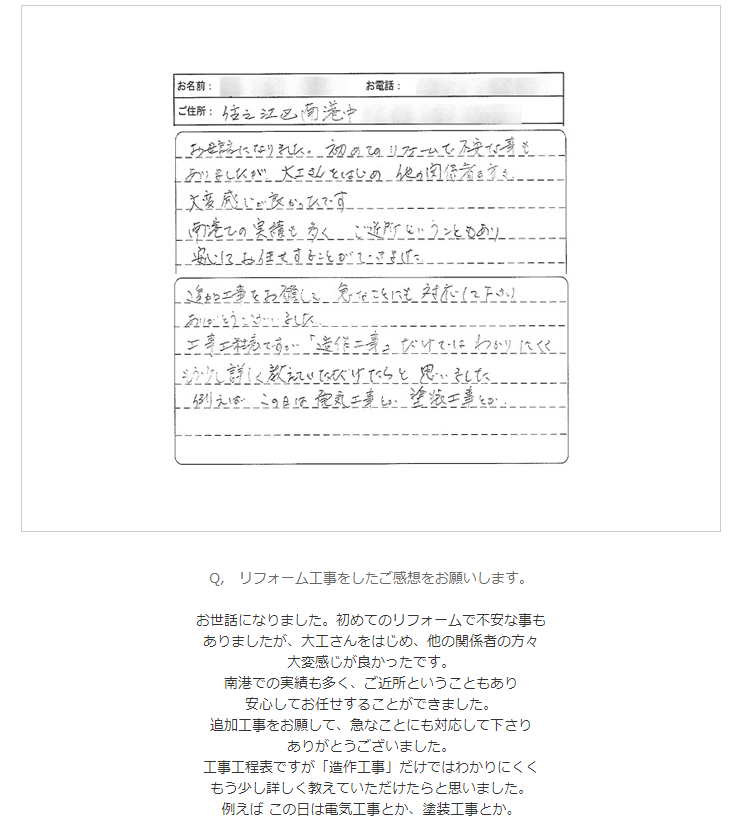 お名前： お電話：
ご住所： 住之江区南港中
お世話になりました。初めてのリフォームで不安な事も
ありましたが、大工さんをはじめ 他の関係者の方々
大変感じが良かったです
南港での実績も多く ご近所ということもあり
安心してお任せすることができました
追加工事をお願して、急なことにも対応して下さり
ありがとうございました。
工事工程表ですが「造作工事」だけではわかりにくく
もう少し詳しく教えていただけたらと思いました
例えば この日は電気工事とか 塗装工事とか.
Q, リフォーム工事をしたご感想をお願いします。
お世話になりました。初めてのリフォームで不安な事も
ありましたが、大工さんをはじめ、他の関係者の方々
大変感じが良かったです。
南港での実績も多く、ご近所ということもあり
安心してお任せすることができました。
追加工事をお願して、急なことにも対応して下さり
ありがとうございました。
工事工程表ですが「造作工事」だけではわかりにくく
もう少し詳しく教えていただけたらと思いました。
例えば この日は電気工事とか、塗装工事とか。